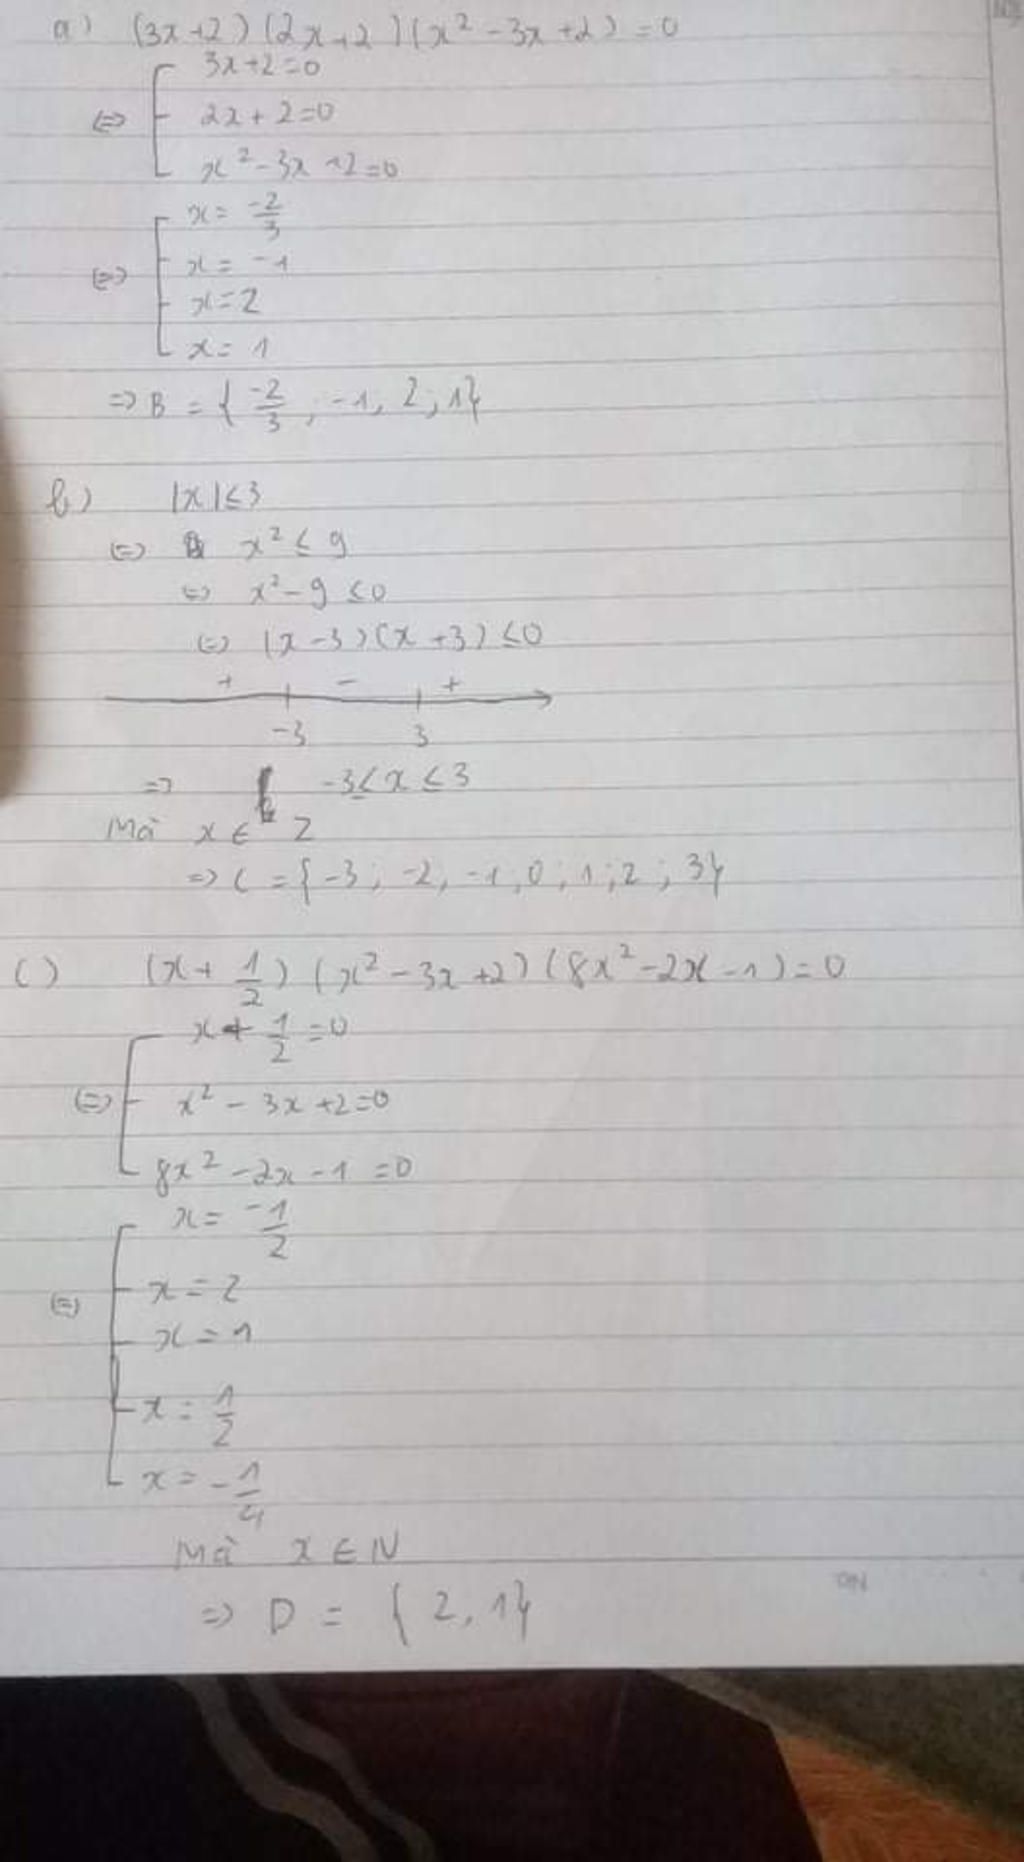 a) (3x+2)(2x+2)(x²-3x+2)=0
⇔ [ 3x+2=0
2x+2=0
x²-3x+2=0
⇔ [ x= -2/3
x= -1
x=2
x= 1
⇒ B = { -2/3 ; -1, 2; 1}
b) |x|≤3
⇔ x² ≤ 9
⇔ x²-9 ≤0
⇔ (x-3)(x+3) ≤0
+ - +
-3 3
⇒ -3≤ x ≤ 3
Mà x ∈ Z
⇒ C = {-3; -2, -1, 0; 1; 2; 3}
c) (x+ 1/2)(x²-3x+2)(8x²-2x-1)=0
⇔ [ x + 1/2 =0
x² - 3x+2=0
8x²-2x-1 =0
⇔ [ x= -1/2
x = 2
x = 1
x = 1/2
x = - 1/4
Mà x ∈ N
⇒ D = { 2, 1}